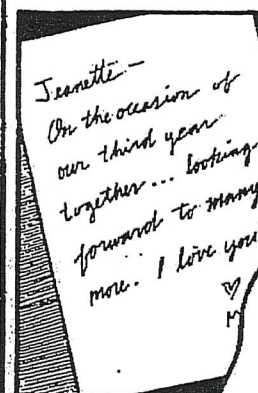 Jeanette –
On the occasion of
our third year
together... Looking
forward to many
more. I love you
♡
M